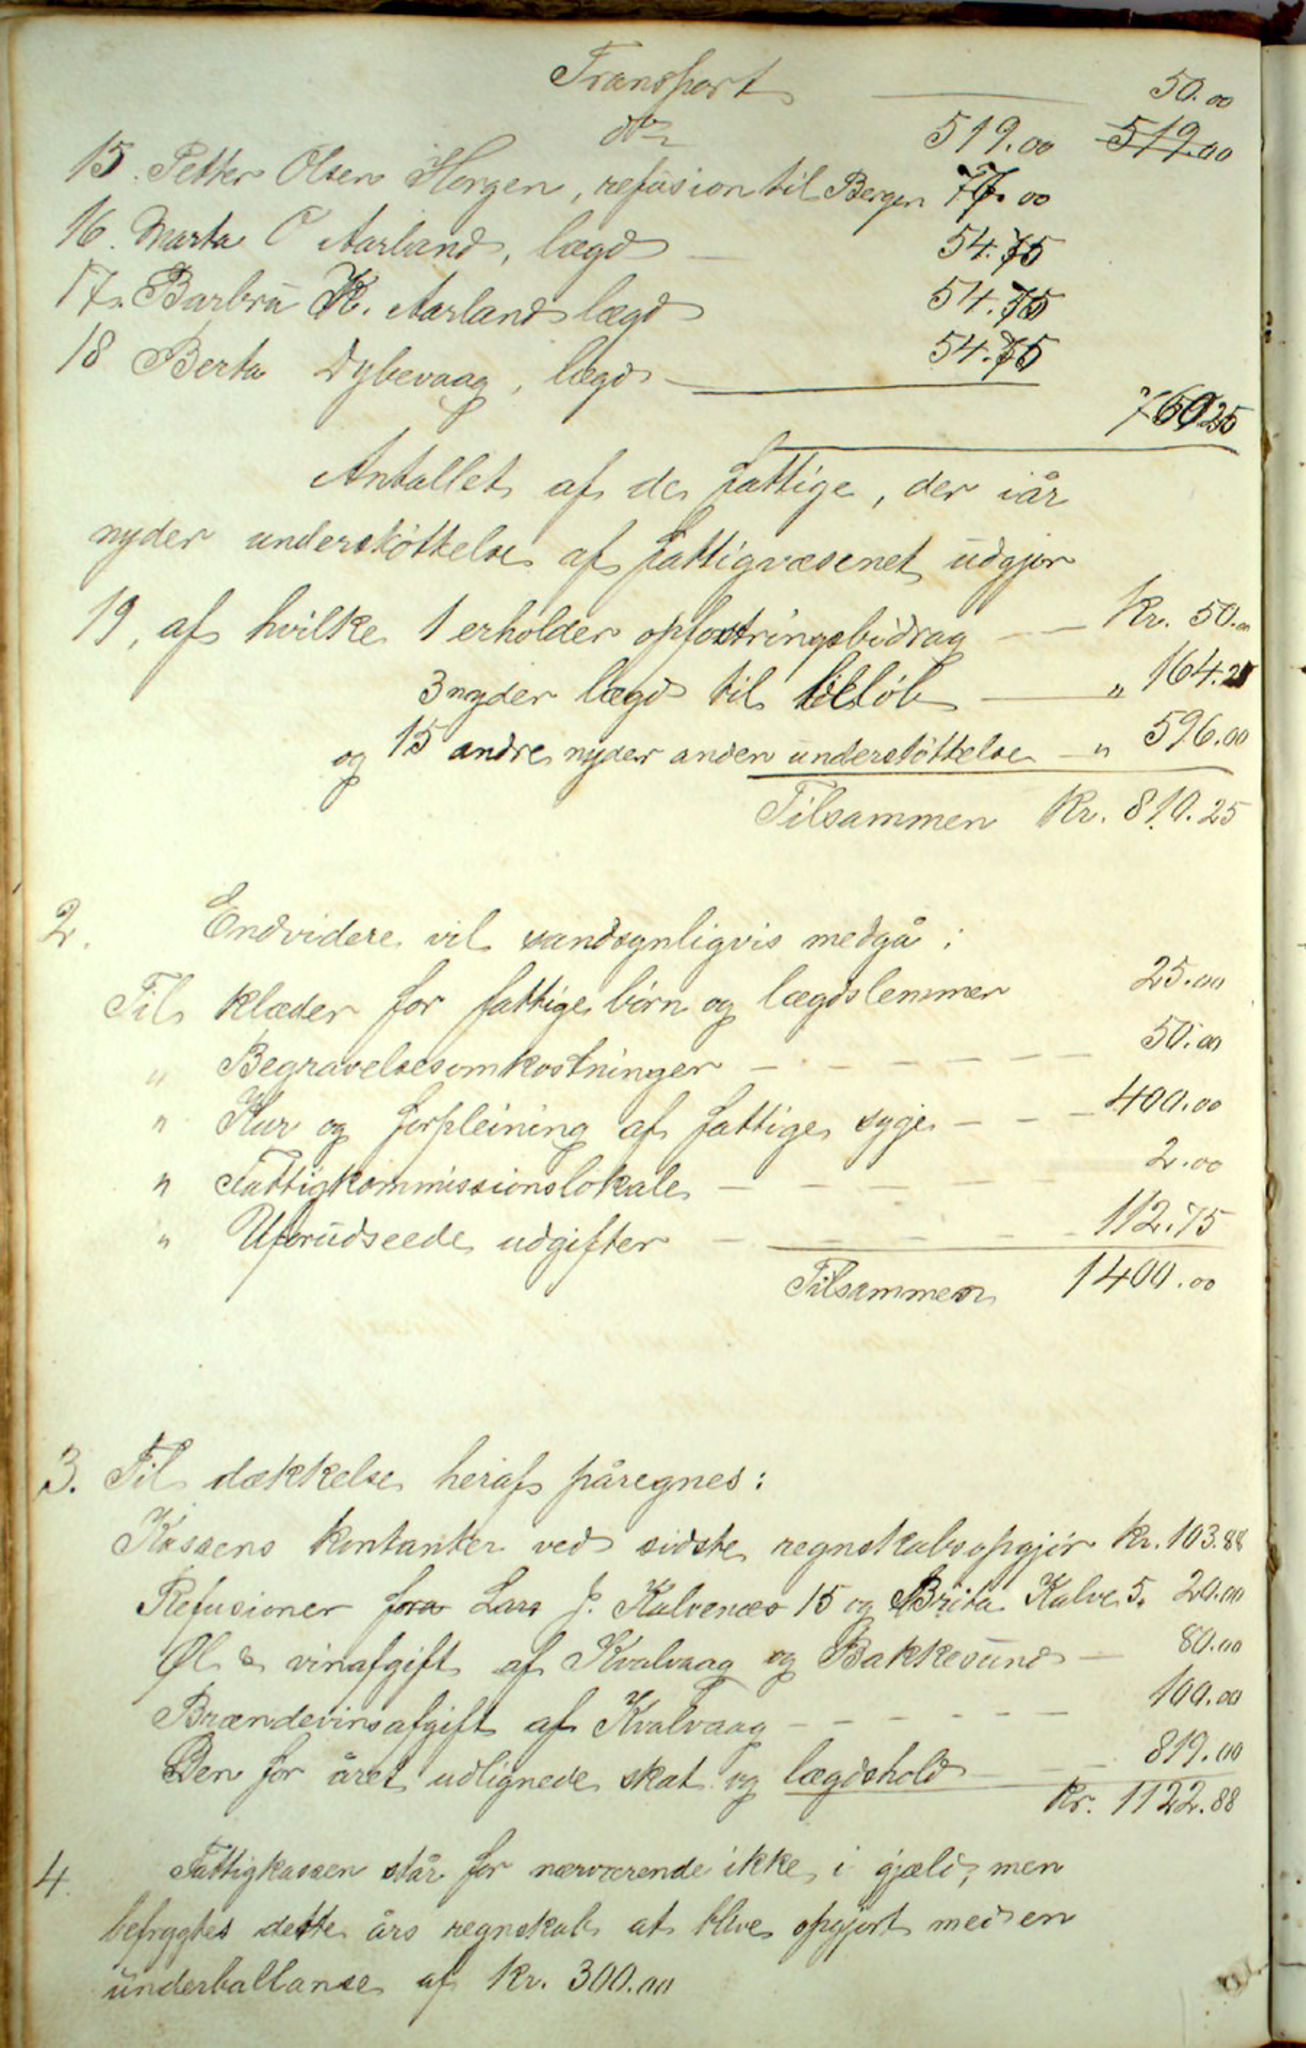 Transport 50.00
do 519.00 519.00
15. Petter Olsen Horgen, refusion til Bergen 77.00
16. Marta O Aarland, lægd 54.75
17. Barbra K. Aarland lægd 54.75
18 Berta Dybevaag, lægd 54.75
760.25
Antallet af de fattige, der iår
nyder understöttelse af fattigvæsenet udgjør
19, af hvilke 1 erholder opfostringsbidrag Kr. 50.00
3 nyder lægd til beløb " 164.25
og 15 andre nyder anden understöttelse " 596.00
Tilsammen Kr. 810.25
2. Endvidere vil sandsynligvis medgå:
Til klæder for fattige börn og lægdslemmer 25.00
" Begravelsesomkostninger 50.00
" Kur og forpleining af fattige syge 400.00
" Fattigkommissionslokale 2.00
" Uforudseede udgifter 112.75
Tilsammen 1400.00
3. Til dækkelse heraf påregnes:
Kassens kontanter ved sidste regnskabsopgjör Kr. 103.88
Refusioner fra Lars J. Kalvenæs 15 og Brita Kalve 5. 20.00
Øl & vinafgift af Kvalvaag og Bakkesund 80.00
Brændevinsafgift af Kvalvaag 100.00
Den for året udlignede skat og lægdshold 819.00
Kr. 1122.88
4. Fattigkassen står for nærværende ikke i gjæld, men
befrygtes dette års regnskab at blive opgjort med en
underballanse af Kr. 300.00